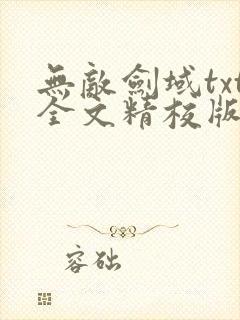 無敵劍域txt
全文精校版
容础